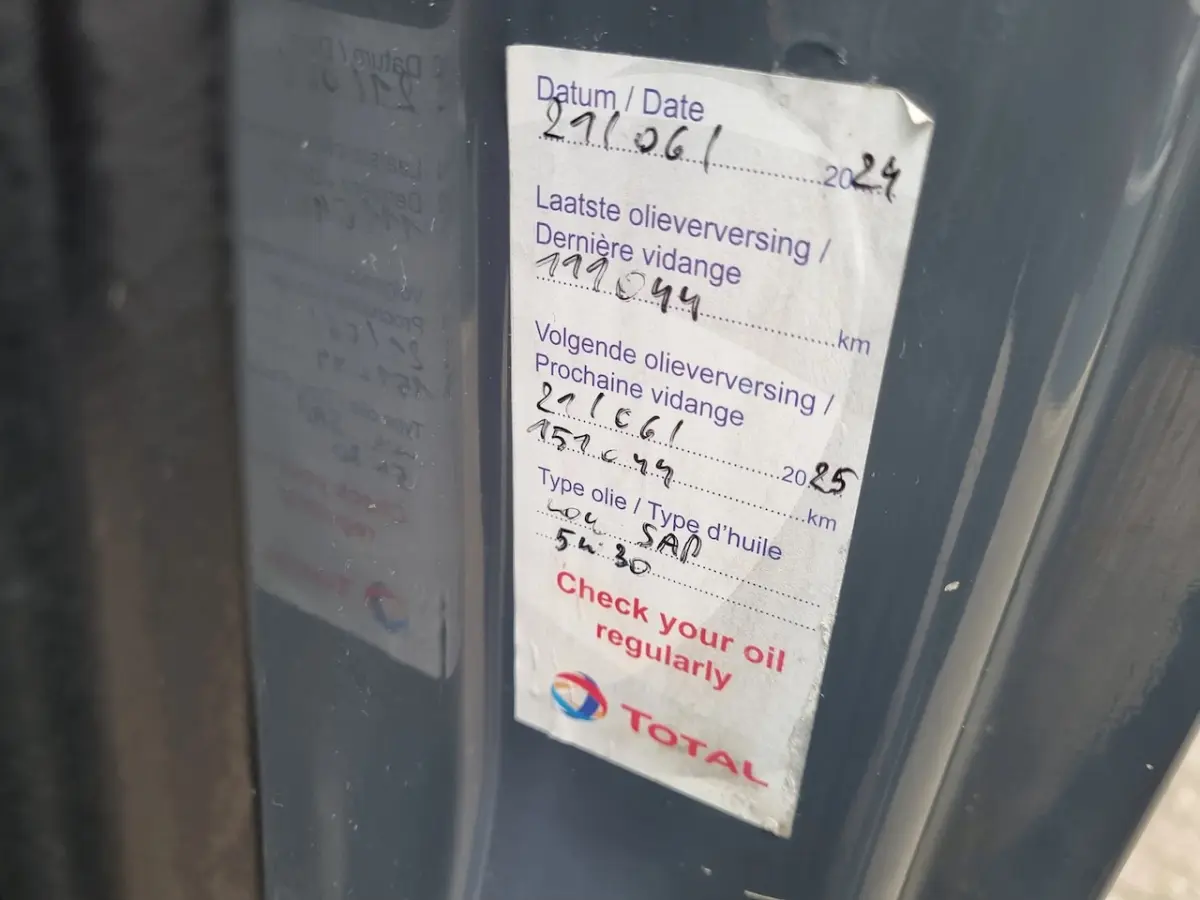 Datum / Date
21/06/ 2024
Laatste olieverversing /
Dernière vidange
111044 km
Volgende olieverversing /
Prochaine vidange
21/06/ 2025
151044 km
Type olie / Type d'huile
SAP
5W30
Check your oil
regularly
TOTAL